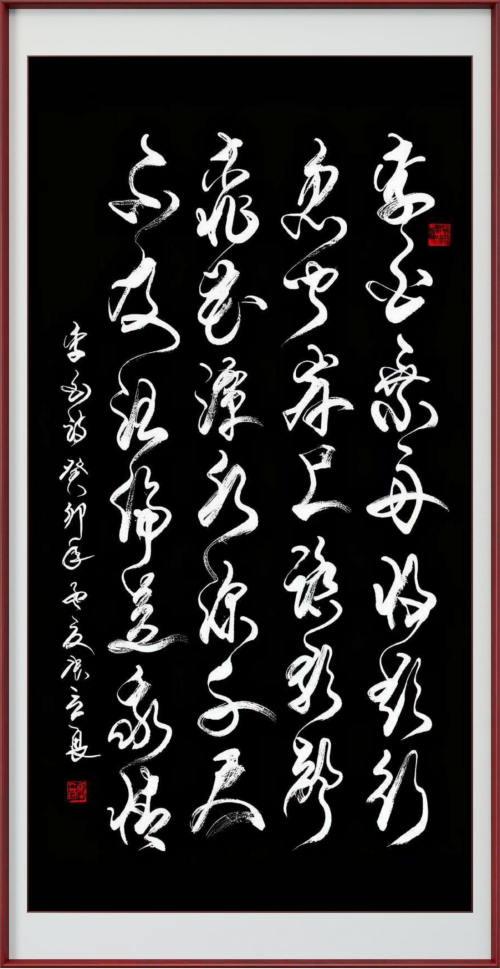 李白乘舟將欲行
忽聞岸上踏歌聲
桃花潭水深千尺
不及汪倫送我情
李白詩癸卯年孟夏